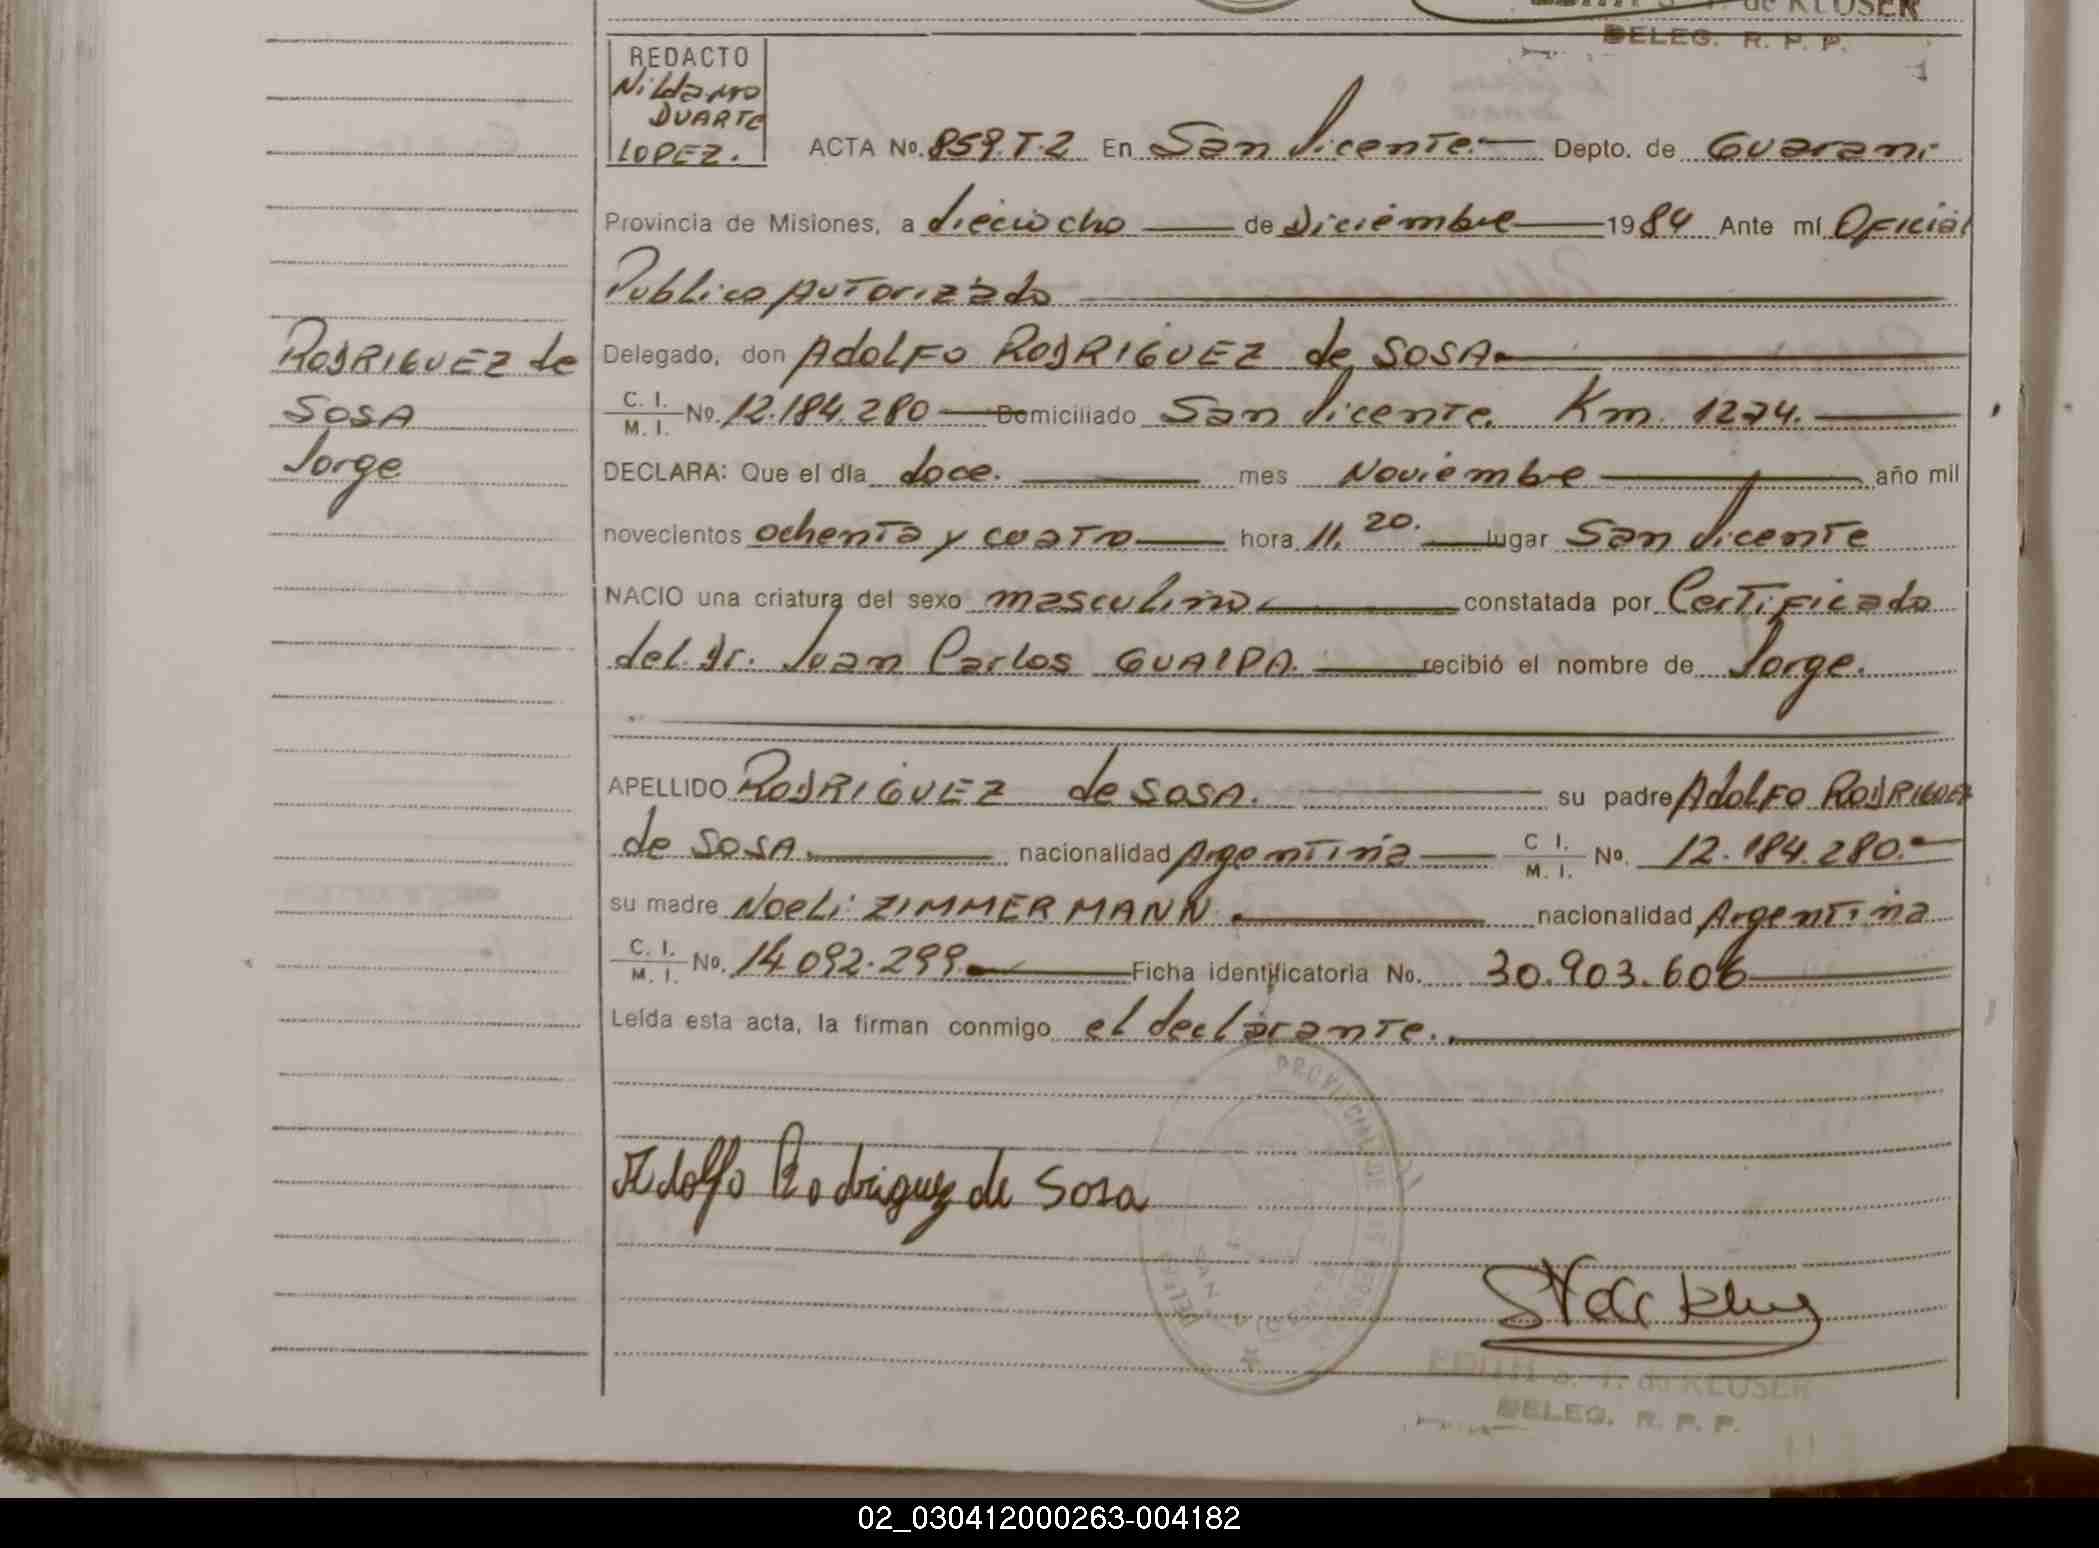 de KLOSER
DELEG. R. P. P.
REDACTO
Nildamo
DUARTE
LOPEZ.
ACTA No. 859.T-2 En San Vicente. Depto. de Guarani
Provincia de Misiones, a dieciocho de Diciembre 1984 Ante mí Oficial
Publico Autorizado
Delegado, don Adolfo RODRIGUEZ de SOSA.
C. I. / M. I. No. 12.184.280 Domiciliado San Vicente. Km. 1274.
DECLARA: Que el día doce. mes Noviembre año mil
novecientos ochenta y cuatro hora 11,20. lugar San Vicente
NACIO una criatura del sexo masculino constatada por Certificado
del Dr. Juan Carlos GUAIPA. recibió el nombre de Jorge.
RODRIGUEZ de
SOSA
Jorge
APELLIDO RODRIGUEZ de SOSA. su padre Adolfo RODRIGUEZ
de SOSA. nacionalidad Argentina C I. / M. I. No. 12.184.280.
su madre Noeli ZIMMERMANN. nacionalidad Argentina
C. I. / M. I. No. 14.092.299. Ficha identificatoria No. 30.903.606
Leída esta acta, la firman conmigo el declarante.
Adolfo Rodriguez de Sosa
EDITH S. T. de KLOSER
DELEG. R. P. P.
02_030412000263-004182